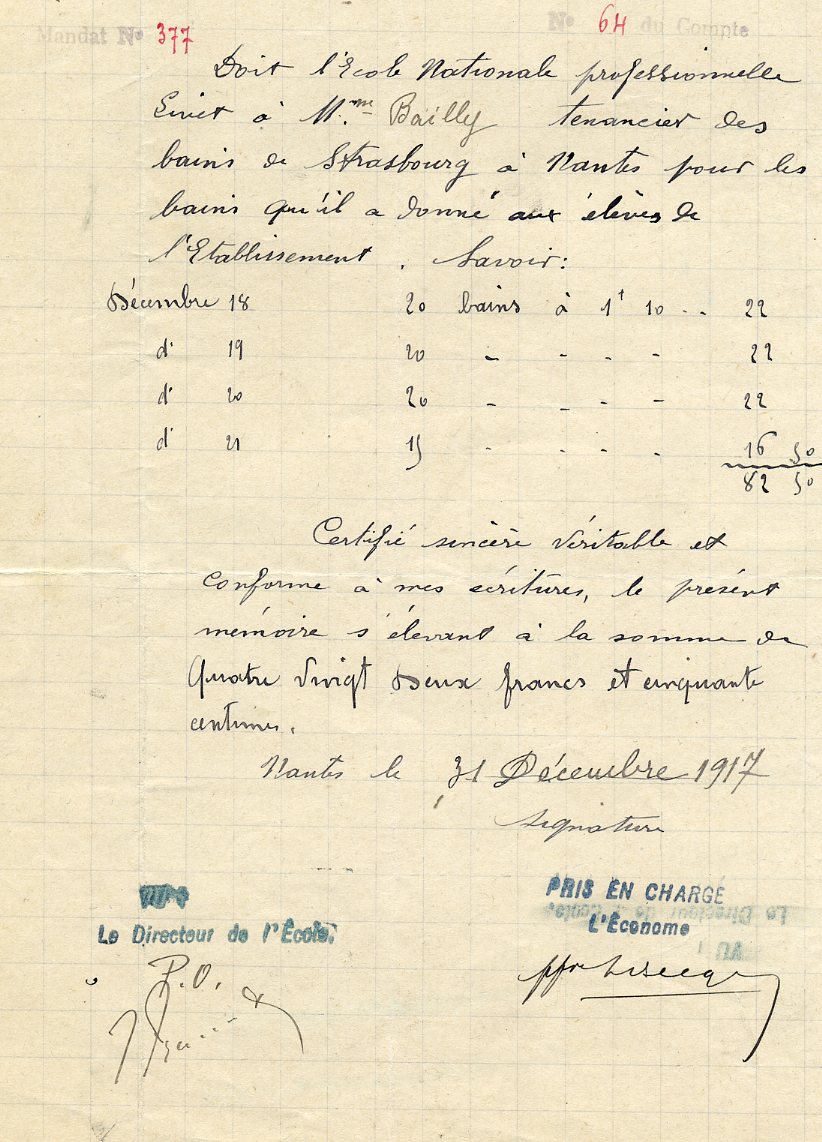 Mandat No 377
No 64 du Compte
Doit l'Ecole Nationale professionnelle
Livet à Mme Bailly tenancier des
bains de Strasbourg à Nantes pour les
bains qu'il a donné aux élèves de
l'Etablissement. Savoir:
Décembre 18 20 bains à 1f 10 .. 22
d° 19 20 - - - - 22
d° 20 20 - - - - 22
d° 21 15 - - - - 16 50
82 50
Certifié sincère véritable et
conforme à mes écritures, le présent
mémoire s'élevant à la somme de
Quatre Vingt Deux francs et cinquante
centimes.
Nantes le 31 Décembre 1917
Signature
PRIS EN CHARGE
L'Économe
VU
Le Directeur de l'École.
P.O.